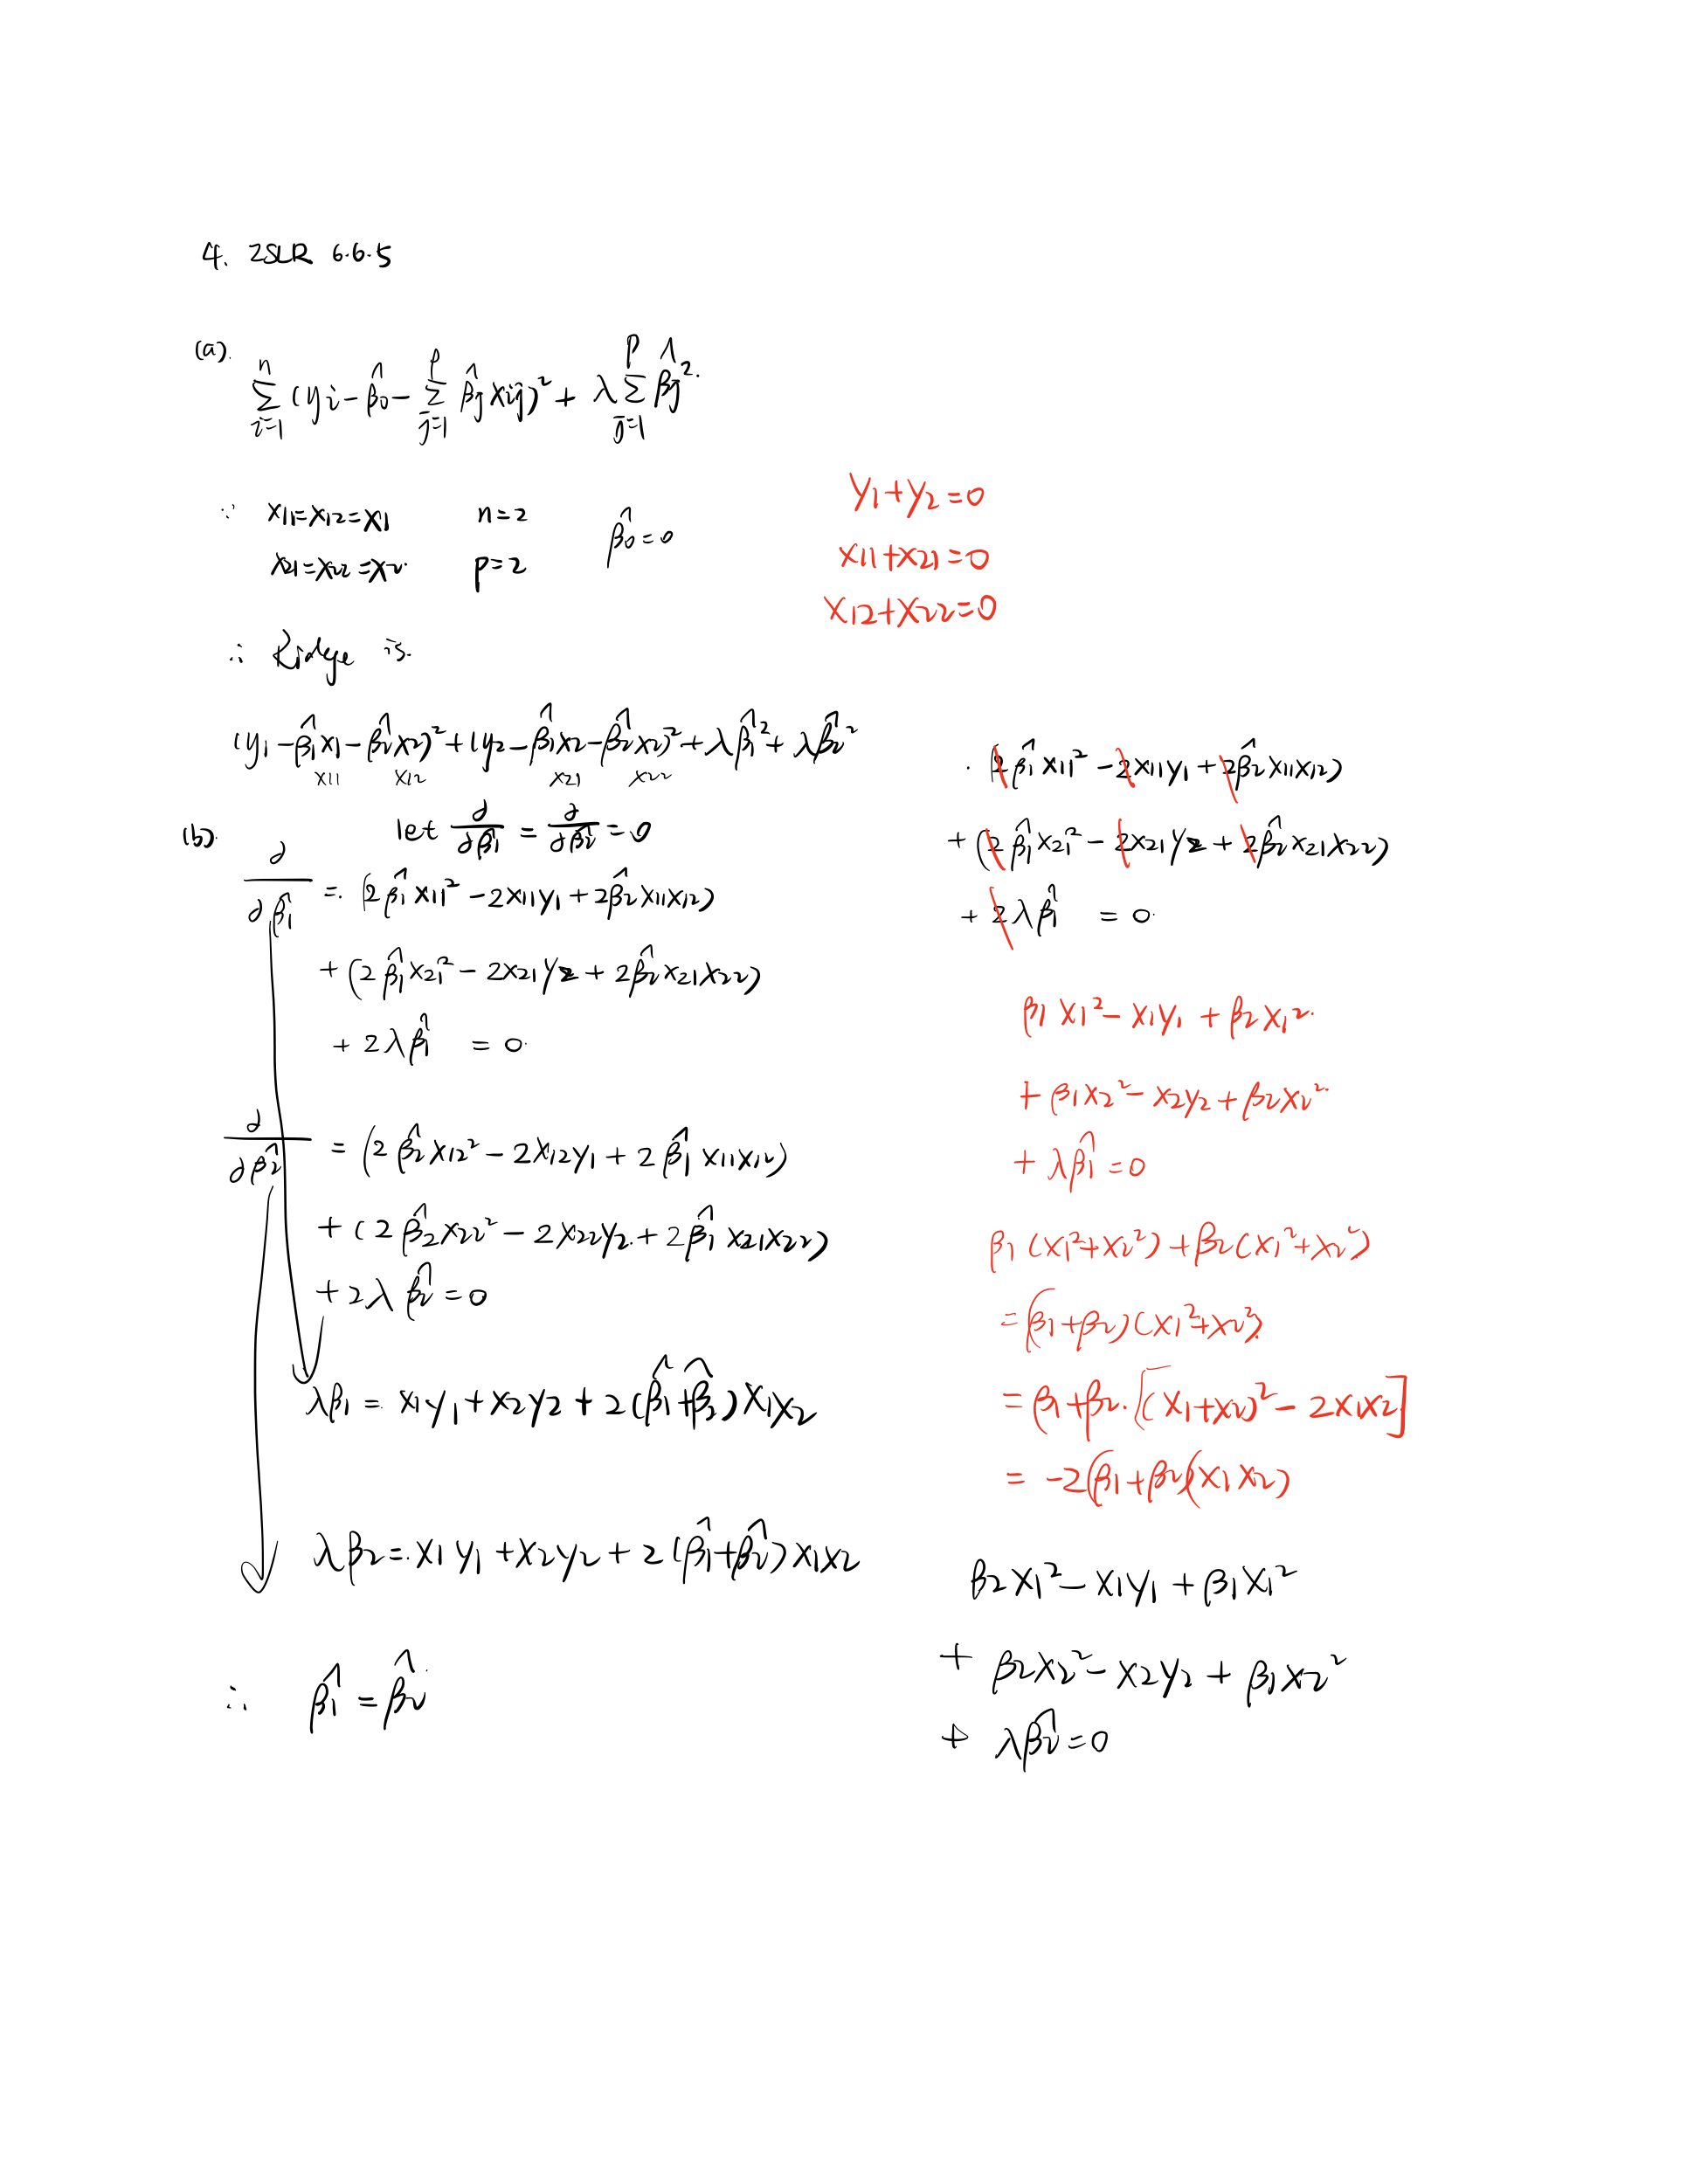 4. ISLR 6.6.5
(a).
n p p
Σ (yi - β̂0 - Σ β̂j xij)² + λ Σ β̂j².
i=1 j=1 j=1
∵ x11=x12=x1 n=2 β̂0=0
x21=x22=x2. p=2
y1+y2=0
x11+x21=0
x12+x22=0
∴ Ridge is.
(y1 - β̂1x1 - β̂2x2)² + (y2 - β̂1x2 - β̂2x2)² + λβ̂1² + λβ̂2²
x11 x12 x21 x22
(b). let ∂/∂β̂1 = ∂/∂β̂2 = 0
∂/∂β̂1 = (2β̂1x11² - 2x11y1 + 2β̂2x11x12)
+ (2β̂1x21² - 2x21y2 + 2β̂2x21x22)
+ 2λβ̂1 = 0.
∂/∂β̂2 = (2β̂2x12² - 2x12y1 + 2β̂1x11x12)
+ (2β̂2x22² - 2x22y2 + 2β̂1x21x22)
+ 2λβ̂2 = 0
λβ1 = x1y1 + x2y2 + 2(β̂1+β̂2)x1x2
λβ2 = x1y1 + x2y2 + 2(β̂1+β̂2)x1x2
∴ β̂1 = β̂2
(2β̂1x11² - 2x11y1 + 2β̂2x11x12)
+ (2β̂1x21² - 2x21y2 + 2β̂2x21x22)
+ 2λβ̂1 = 0.
β1x1² - x1y1 + β2x1².
+ β1x2² - x2y2 + β2x2².
+ λβ̂1 = 0
β1(x1²+x2²) + β2(x1²+x2²)
= (β1+β2)(x1²+x2²)
= β1+β2.[(x1+x2)² - 2x1x2]
= -2(β1+β2)(x1x2)
β2x1² - x1y1 + β1x1²
+ β2x2² - x2y2 + β1x2²
+ λβ̂2 = 0